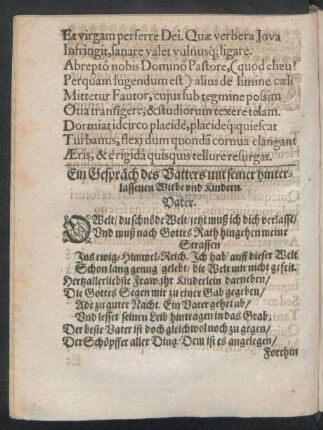 Et virgam perferre Dei. Quæ verbera Jova
Infringit, sanare valet vulnusq; ligare.
Abreptô nobis Dominô Pastore, (quod eheu!
Perquàm lugendum est) alius de limine cæli
Mittetur Fautor, cujus sub tegmine possim
Otia transigere, & studiorum texere telam.
Dormiat idcirco placidè, placideq; quiescat
Turbanus, flexi dum quondã cornua clangant
Æris, & è rigida quisquis tellure resurgat.
Ein Gespräch des Vatters mit seiner hinter-
lassenen Witbe vnd Kindern.
Vater.
O Welt / du schnöde Welt jetzt muß ich dich verlassẽ /
Vnd muß nach Gottes Rath hingehen meine
Strassen
Ins ewig-Himmel-Reich. Ich hab' auff dieser Welt
Schon lang genug gelebt / die Welt mir nicht gefelt.
Hertzallerliebste Fraw / ihr Kinderlein darneben /
Die Gottes Segen mir zu einer Gab gegeben /
Ade zu guter Nacht. Ein Vater gehet ab /
Vnd lesset seinen Leib hintragen in das Grab;
Der beste Vater ist doch gleichwol noch zu gegen /
Der Schöpffer aller Ding: Dem ist es angelegen /
Forthin